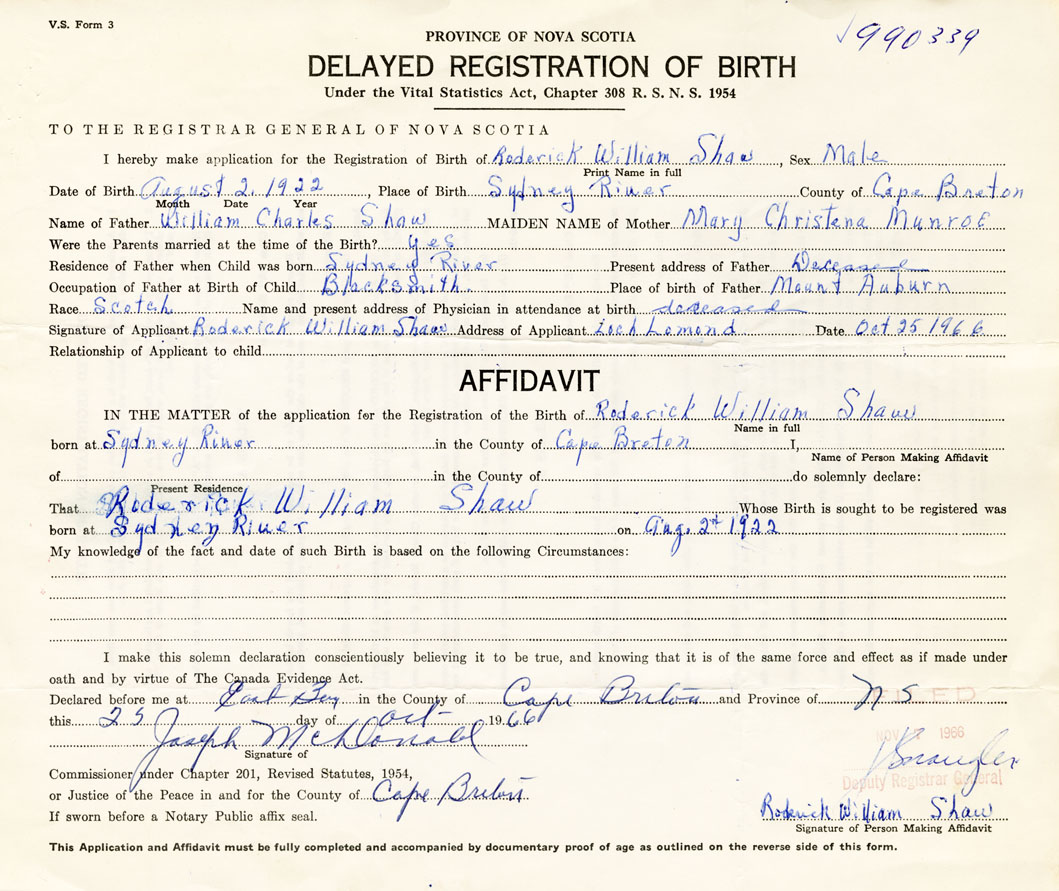 V.S. Form 3
990339
PROVINCE OF NOVA SCOTIA
DELAYED REGISTRATION OF BIRTH
Under the Vital Statistics Act, Chapter 308 R. S. N. S. 1954
TO THE REGISTRAR GENERAL OF NOVA SCOTIA
I hereby make application for the Registration of Birth of Roderick William Shaw, Sex Male
Print Name in full
Date of Birth August 2, 1922, Place of Birth Sydney River County of Cape Breton
Month Date Year
Name of Father William Charles Shaw MAIDEN NAME of Mother Mary Christena Munroe
Were the Parents married at the time of the Birth? yes
Residence of Father when Child was born Sydney River Present address of Father Deceased
Occupation of Father at Birth of Child Blacksmith. Place of birth of Father Mount Auburn
Race Scotch Name and present address of Physician in attendance at birth deceased
Signature of Applicant Roderick William Shaw Address of Applicant Loch Lomond Date Oct 25 1966
Relationship of Applicant to child
AFFIDAVIT
IN THE MATTER of the application for the Registration of the Birth of Roderick William Shaw
Name in full
born at Sydney River in the County of Cape Breton I,
Name of Person Making Affidavit
of in the County of do solemnly declare:
Present Residence
That Roderick William Shaw Whose Birth is sought to be registered was
born at Sydney River on Aug. 2nd 1922
My knowledge of the fact and date of such Birth is based on the following Circumstances:
I make this solemn declaration conscientiously believing it to be true, and knowing that it is of the same force and effect as if made under
oath and by virtue of The Canada Evidence Act.
Declared before me at East Bay in the County of Cape Breton and Province of N S
this 25 day of Oct 1966
FILED
NOV 1966
Joseph McDonald
Signature of
Deputy Registrar General
Commissioner under Chapter 201, Revised Statutes, 1954,
or Justice of the Peace in and for the County of Cape Breton
Roderick William Shaw
If sworn before a Notary Public affix seal.
Signature of Person Making Affidavit
This Application and Affidavit must be fully completed and accompanied by documentary proof of age as outlined on the reverse side of this form.